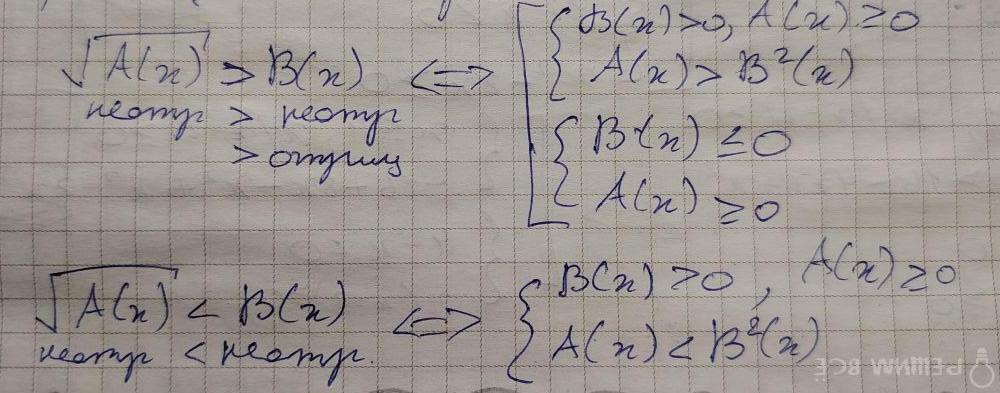 √A(x) > B(x) ⟺ [ { B(x) > 0, A(x) ≥ 0
A(x) > B²(x)
неотр > неотр
> отриц
{ B(x) ≤ 0
A(x) ≥ 0
√A(x) < B(x) ⟺ { B(x) > 0, A(x) ≥ 0
A(x) < B²(x)
неотр < неотр.
Решим всё